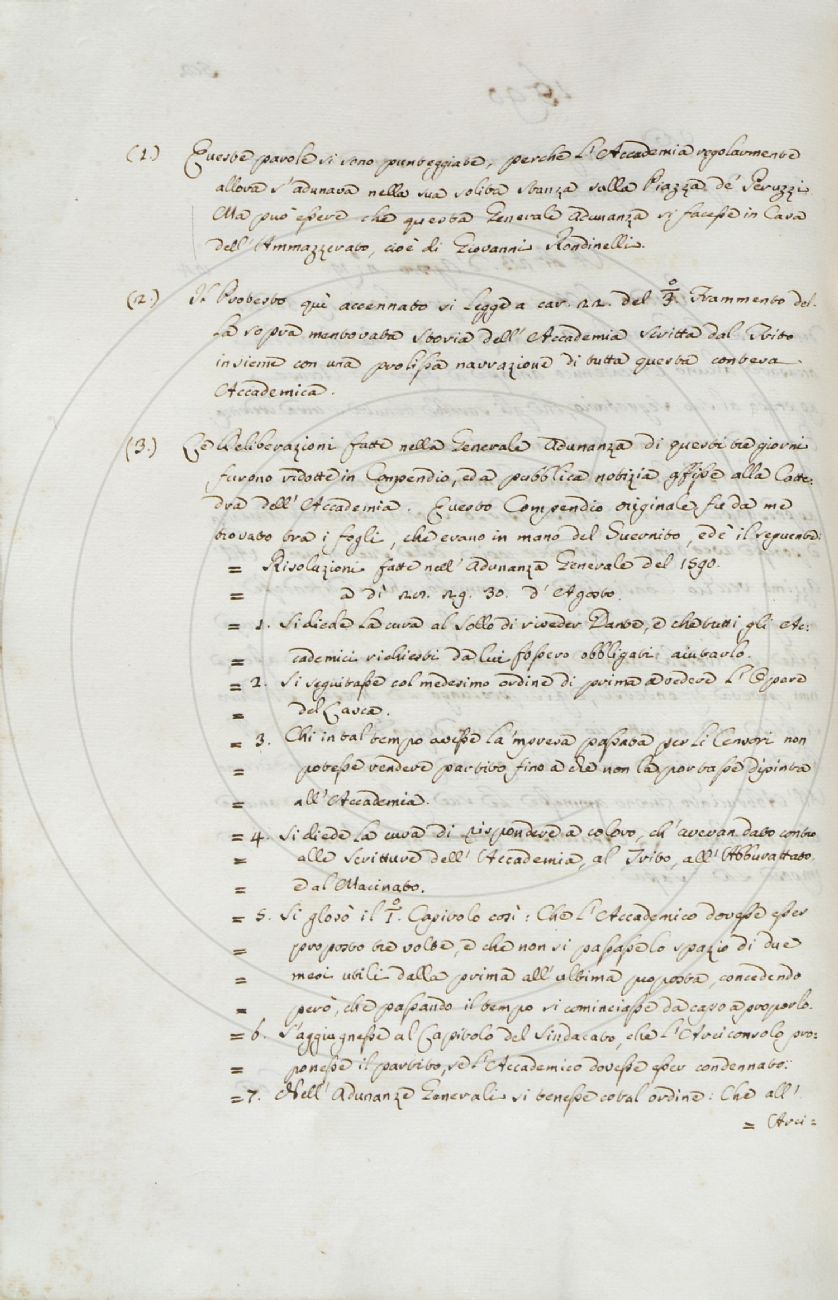 (1.) Queste parole si sono punteggiate, perche l'Accademia regolarmente
allora s'adunava nella sua solita stanza sulla Piazza de' Peruzzi.
Ma può essere che questa Generale Adunanza si facesse in Casa
dell'Ammazzerato, cioè di Giovanni Rondinelli.
(2.) Il Protesto quì accennato si legge a car. 22. del 3.º Frammento del-
la sopra mentovata storia dell'Accademia scritta dal Trito
insieme con una prolissa narrazione di tutta questa contesa
Accademica.
(3.) Le Deliberazioni fatte nella Generale Adunanza di questi tre giorni
furono ridotte in Conpendio, ed a pubblica notizia affisse alla Catte:
dra dell'Accademia. Questo Compendio originale fu da me
trovato tra i fogli, che erano in mano del Guernito, ed è il seguente:
= Risoluzioni fatte nell'Adunanza Generale del 1590.
= a dì 28. 29. 30. d'Agosto.
= 1. Si diede la cura al Sollo di riveder Dante, e che tutti gli Ac:
= cademici richiesti da lui fossero obbligati aiutarlo.
= 2. Si seguitasse col medesimo ordine di prima a vedere l'Opere
= del Casa.
= 3. Chi in tal tempo avesse la 'mpresa passata per li Censori non
= potesse rendere partito fino a che non la portasse dipinta
= all'Accademia.
= 4. Si diede la cura di rispondere a coloro, ch'averan dato contro
= alle scritture dell'Accademia, al Trito, all'Abburattato,
= e al Macinato.
= 5. Si glosò il 1.º Capitolo così: Che l'Accademico dovesse esser
= proposto tre volte, e che non si passasse lo spazio di due
= mesi utili dalla prima all'ultima proposta, concedendo
= però, che passando il tempo si cominciasse da capo a proporlo.
= 6. S'aggiugnesse al Capitolo del Sindacato, che l'Arciconsolo pro:
= ponesse il partito, se l'Accademico dovesse esser condennato.
= 7. Nell'Adunanze Generali si tenesse cotal ordine: Che all'
= Arci=